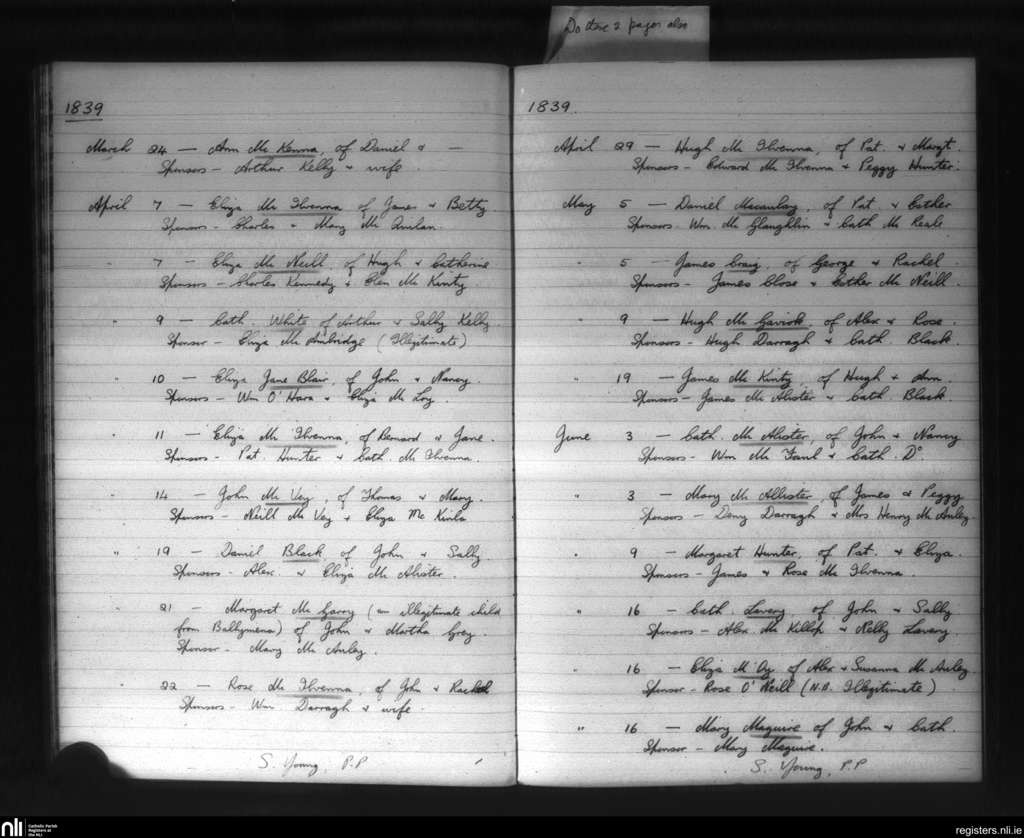 Do these 2 pages also
1839
March 24 — Ann Mc Kenna, of Daniel & —
Sponsors - Arthur Kelly & wife.
April 7 — Eliza Mc Ilvenna of James & Betty.
Sponsors - Charles & Mary Mc Quilan.
" 7 — Eliza Mc Neill, of Hugh & Catherine
Sponsors - Charles Kennedy & Elen Mc Kinty.
" 9 — Cath. White of Arthur & Sally Kelly.
Sponsor - Eliza Mc Ambridge (Illegitimate)
" 10 — Eliza Jane Blair, of John & Nancy.
Sponsors - Wm O'Hara & Eliza Mc Loy.
" 11 — Eliza Mc Ilvenna, of Bernard & Jane.
Sponsors - Pat. Hunter & Cath. Mc Ilvenna.
" 14 — John Mc Vey, of Thomas & Mary.
Sponsors - Neill Mc Vey & Eliza Mc
" 19 — Daniel Black of John & Sally.
Sponsors - Alex. & Eliza Mc Alister.
" 21 — Margaret Mc Garry (an illegitimate child
from Ballymena) of John & Martha Grey.
Sponsor - Mary Mc Auley.
" 22 — Rose Mc Ilvenna, of John & Rachel
Sponsors - Wm Darragh & wife.
S. Young, P.P
1839.
April 29 — Hugh Mc Ilvenna, of Pat. & Margt.
Sponsors - Edward Mc Ilvenna & Peggy Hunter.
May 5 — Daniel Macaulay, of Pat. & Esther
Sponsors. Wm. Mc Glaughlin & Cath Mc Neale
" 5 — James Craig, of George & Rachel
Sponsors - James Close & Esther Mc Neill.
" 9 — Hugh Mc Gavick, of Alex & Rose.
Sponsors - Hugh Darragh & Cath. Black.
" 19 — James Mc Kinty, of Hugh & Ann.
Sponsors - James Mc Alister & Cath Black.
June 3 — Cath. Mc Alister, of John & Nancy
Sponsors - Wm Mc Faul & Cath. Do.
" 3 — Mary Mc Allister, of James & Peggy
Sponsors - Deny Darragh & Mrs Henry Mc Auley.
" 9 — Margaret Hunter, of Pat. & Eliza.
Sponsors - James & Rose Mc Ilvenna.
" 16 — Cath. Lavery of John & Sally
Sponsors - Alex. Mc Killop & Nelly Lavery.
" 16 — Eliza M'Ay, of Alex & Susanna Mc Auley
Sponsor - Rose O'Neill (N.B. Illegitimate)
" 16 — Mary Maguire of John & Cath.
Sponsor - Mary Maguire.
S. Young, P.P
nli Catholic Parish
Registers at
the NLI
registers.nli.ie